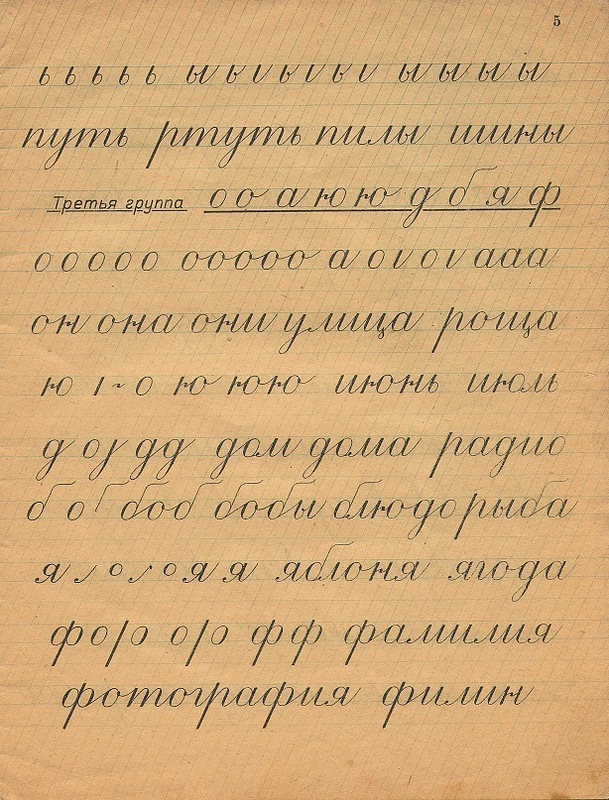 5
ь ь ь ь ь ы ь ı ь ı ь ı ы ы ы ы
путь ртуть пилы шины
Третья группа о о а ю ю д б я ф
о о о о о о о о о о а о ı о ı а а а
он она они улица роща
ю ı ~ о ю ю ю июнь июль
д о ȷ д д дом дома радио
б о б о б бобы блюдо рыба
я о о я я яблоня ягода
ф о р о р ф ф фамилия
фотография филин